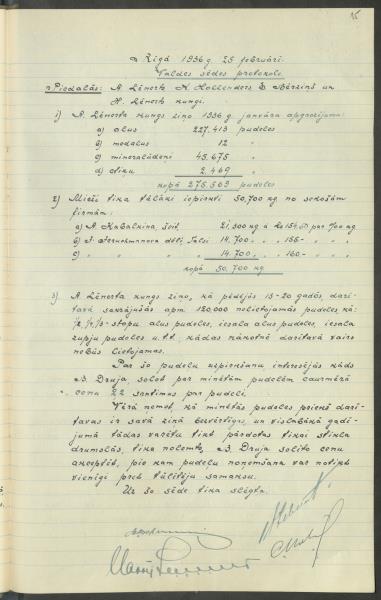 15
Rīgā 1936 g. 25 februārī.
Valdes sēdes protokols.
Piedalās: A. Lēnerts K. Hollenders E. Bērziņš un
H. Lēnerts kungi.
1) A. Lēnerts kungs ziņo 1936 g. janvāra apgrozījumu:
a) alus 227.413 pudeles
b) medalus 12 "
c) minerālūdeni 45.675 "
d) etiķu 2.469 "
kopā 275.569 pudeles
2) Mieži tika tālāki iepirkti 50.700 kg no sekošām
firmām:
a) A. Kabalkina, šeit, 21.300 kg à Ls 154.50 par 100 kg
b) dēli, Talsi 14.700 . " 155.- " " "
c) " " " 14.700 . " 160.- " " "
kopā 50.700 kg
3) A. Lēnerta kungs ziņo, ka pēdējos 15-20 gados, darī-
tavā sakrājušās apm. 120.000 nelietojamās pudeles kā:
1/2, 1/1, 1/3 - stopu alus pudeles, iesala alus pudeles, iesala
zupju pudeles u.t.t. kādas nākotnē darītavā vairs
nebūs lietojamas.
Par šo pudeļu uzpirkšanu interesējās kāds
Druja, solot par minētām pudelēm caurmērā
cenu 22 santīmus par pudeli.
Vērā ņemot, ka minētās pudeles priekš darī-
tavas ir savā ziņā bezvērtīgas, un vislabākā gadī-
jumā tādas varētu tikt pārdotas tikai stikla
drumslās, tika nolemts, Druja solīto cenu
akceptēt, pie kam pudeļu noņemšana var notikt
vienīgi pret tūlītēju samaksu.
Ar šo sēde tika slēgta.